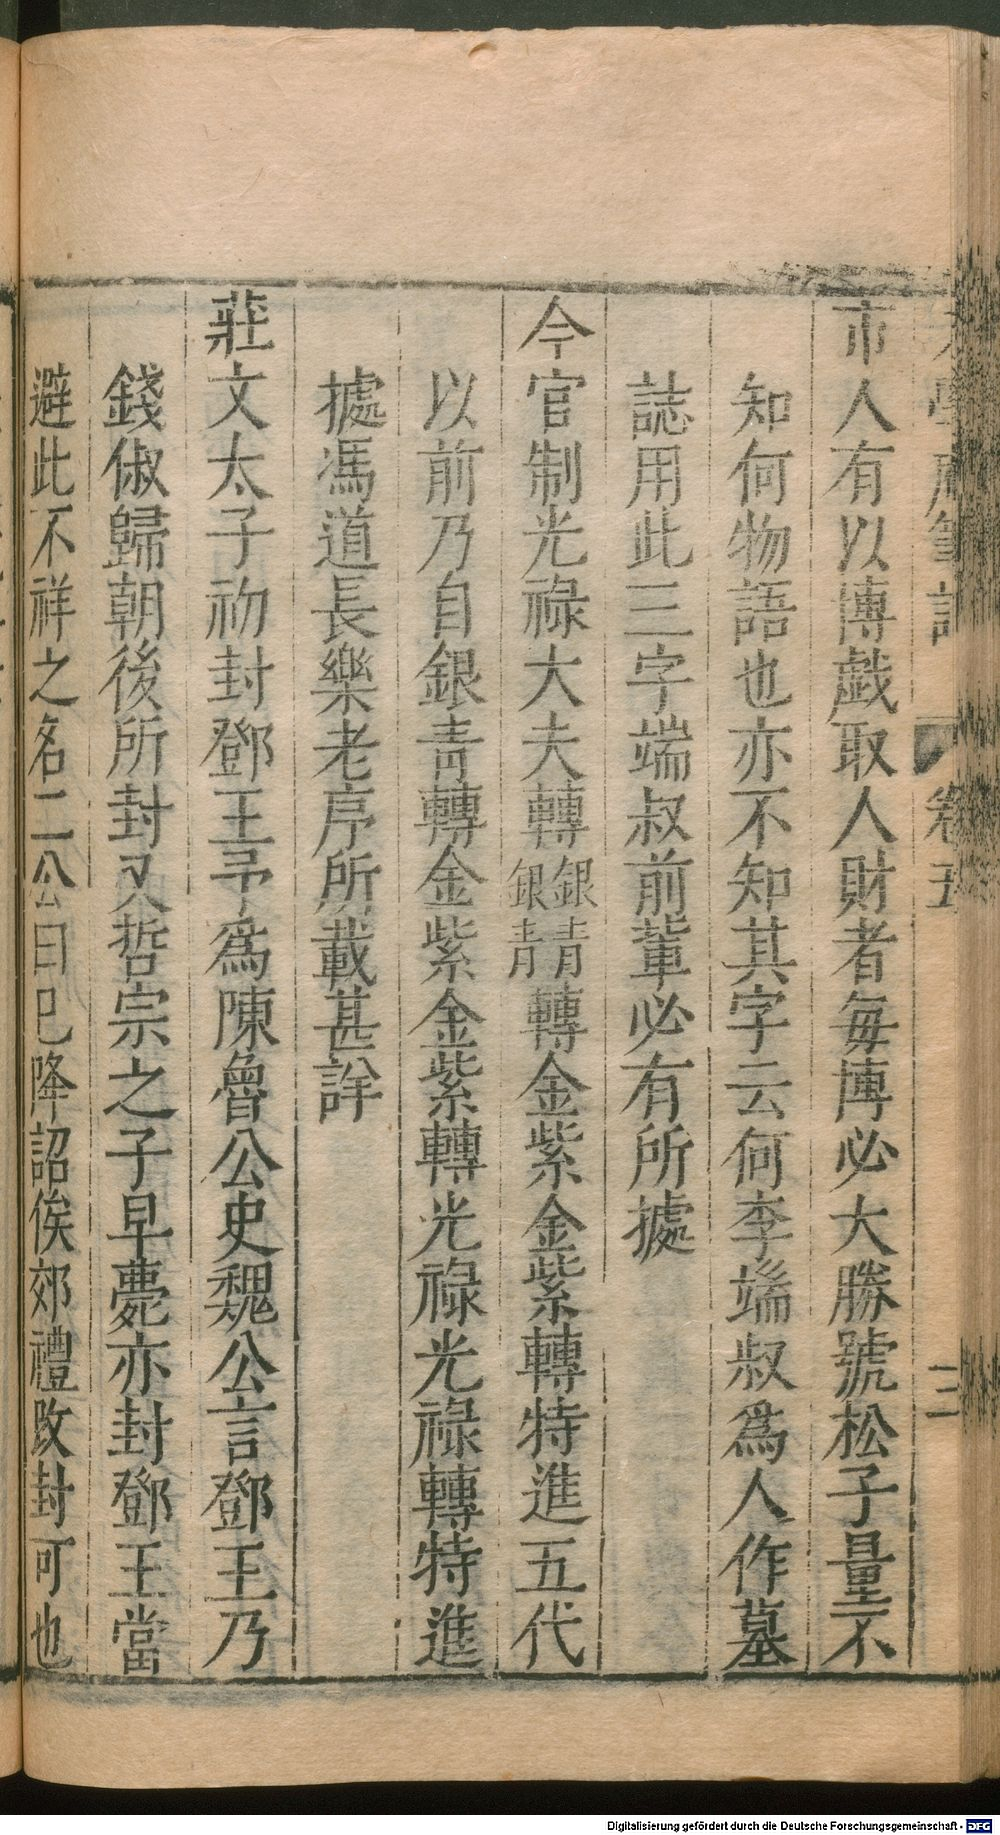 老學庵筆記 卷五 三
市人有以博戲取人財者每博必大勝號松子量不
知何物語也亦不知其字云何李端叔爲人作墓
誌用此三字端叔前輩必有所據
今官制光祿大夫轉銀青銀青轉金紫金紫轉特進五代
以前乃自銀青轉金紫金紫轉光祿光祿轉特進
據馮道長樂老序所載甚詳
莊文太子初封鄧王予爲陳魯公史魏公言鄧王乃
錢俶歸朝後所封又哲宗之子早薨亦封鄧王當
避此不祥之名二公曰已降詔俟郊禮改封可也
Digitalisierung gefördert durch die Deutsche Forschungsgemeinschaft - DFG